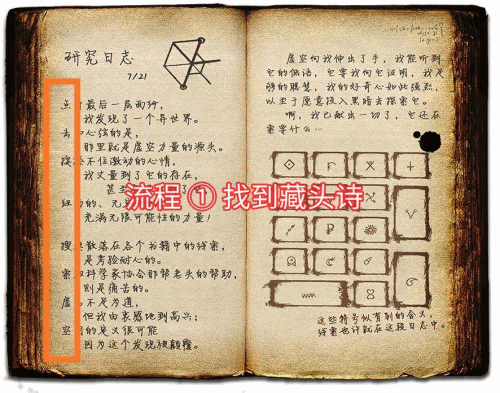 研究日志
7/21
最后一层面纱,
我发现了一个异世界。
心弦的是,
那里就是虚空力量的源头。
不住激动的心情,
我丈量到了它的存在,
甚至
了
的、无
充满无限可能性的力量!
搜集散落在各个书籍中的线索,
是考验耐心的。
索取科学家协会那帮老头的帮助,
则是痛苦的。
虚
不足为道,
但我由衷感地到高兴;
空间的意义很可能
因为这个发现被颠覆。
流程 ① 找到藏头诗
虚空向我伸出了手,我能听到
它的低语,它要我向它证明,我足
够的聪慧,我的好奇心如此强烈,
以至于愿意投入黑暗去探索它。
啊,我已献出一切了,它还在
索要什么…
这些符号似有别的含义,
线索也许就在这段日志中。